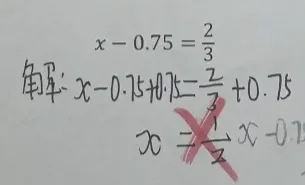 x − 0.75 = 2/3
解: x-0.75+0.75=2/3+0.75
x = 1/2 x-0.7